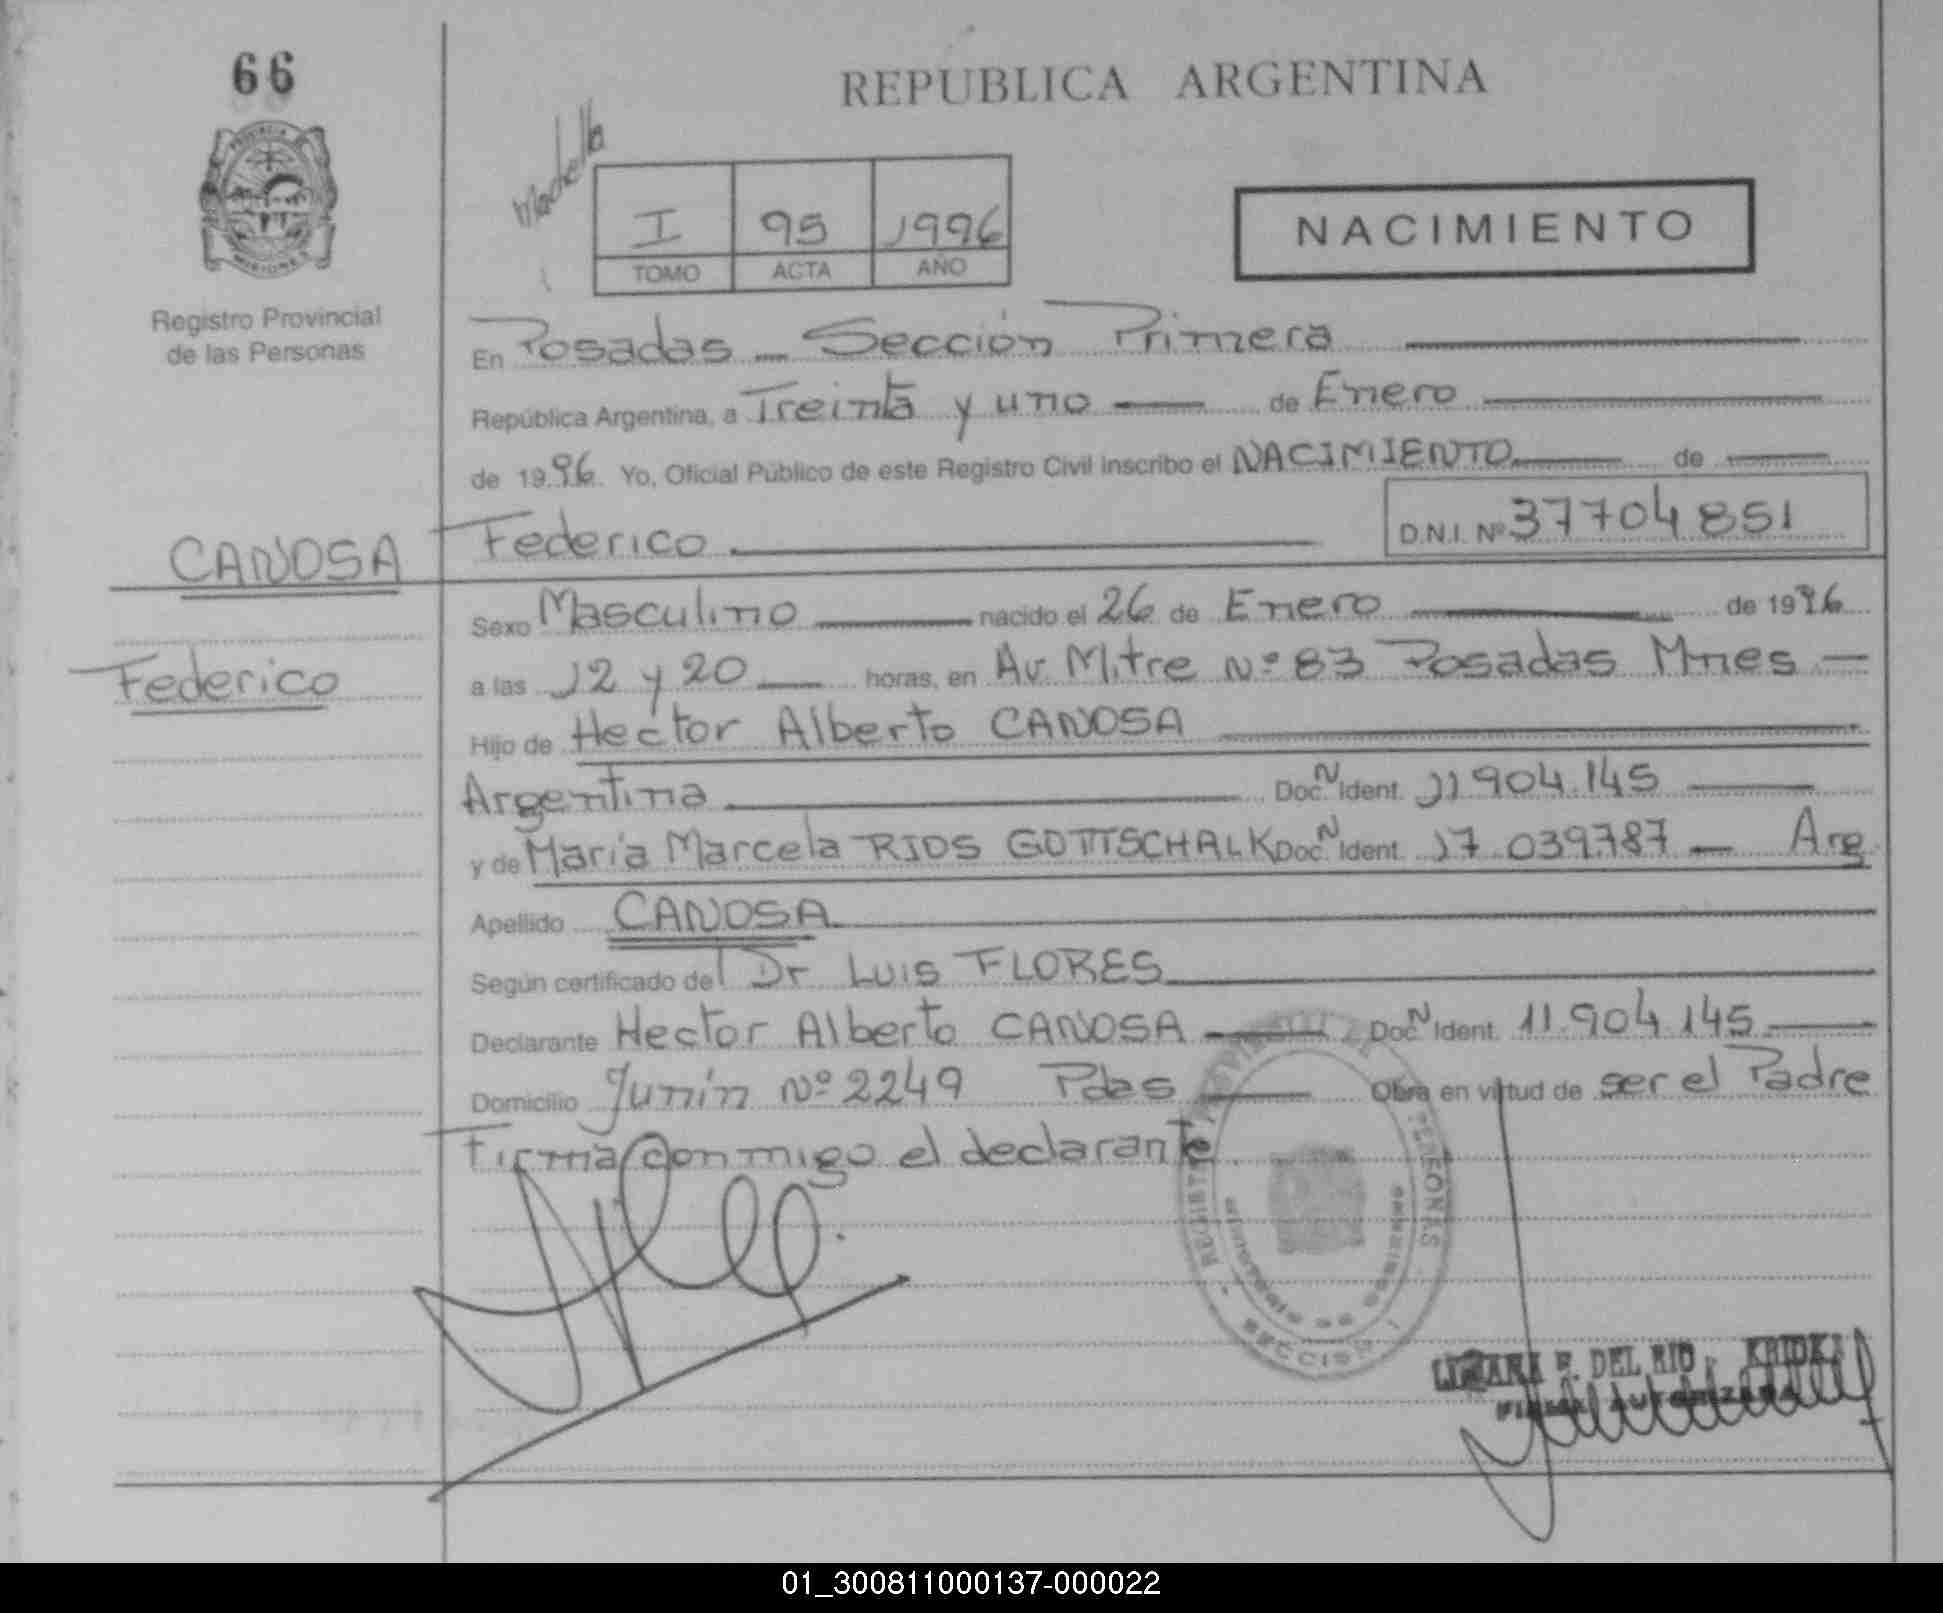 66
REPUBLICA ARGENTINA
I 95 1996
TOMO ACTA AÑO
NACIMIENTO
PROVINCIA
MISIONES
Registro Provincial
de las Personas
En Posadas - Sección Primera
República Argentina, a Treinta y uno de Enero
de 1996. Yo, Oficial Público de este Registro Civil inscribo el NACIMIENTO de
CANOSA
Federico
Federico D.N.I. Nº 37704851
Sexo Masculino nacido el 26 de Enero de 1996
a las 12 y 20 horas, en Av. Mitre Nº 83 Posadas Mnes
Hijo de Hector Alberto CANOSA
Argentina Doc. N Ident. 11904.145
y de María Marcela RIOS GOTTSCHALK Doc. N Ident. 17.039.787 Arg
Apellido CANOSA
Según certificado del Dr Luis FLORES
Declarante Hector Alberto CANOSA Doc. N Ident. 11.904.145
Domicilio Junín Nº 2249 Pdas Obra en virtud de ser el Padre
Firma conmigo el declarante
PERSONAS
SECCION 1
DEL RIO
01_300811000137-000022